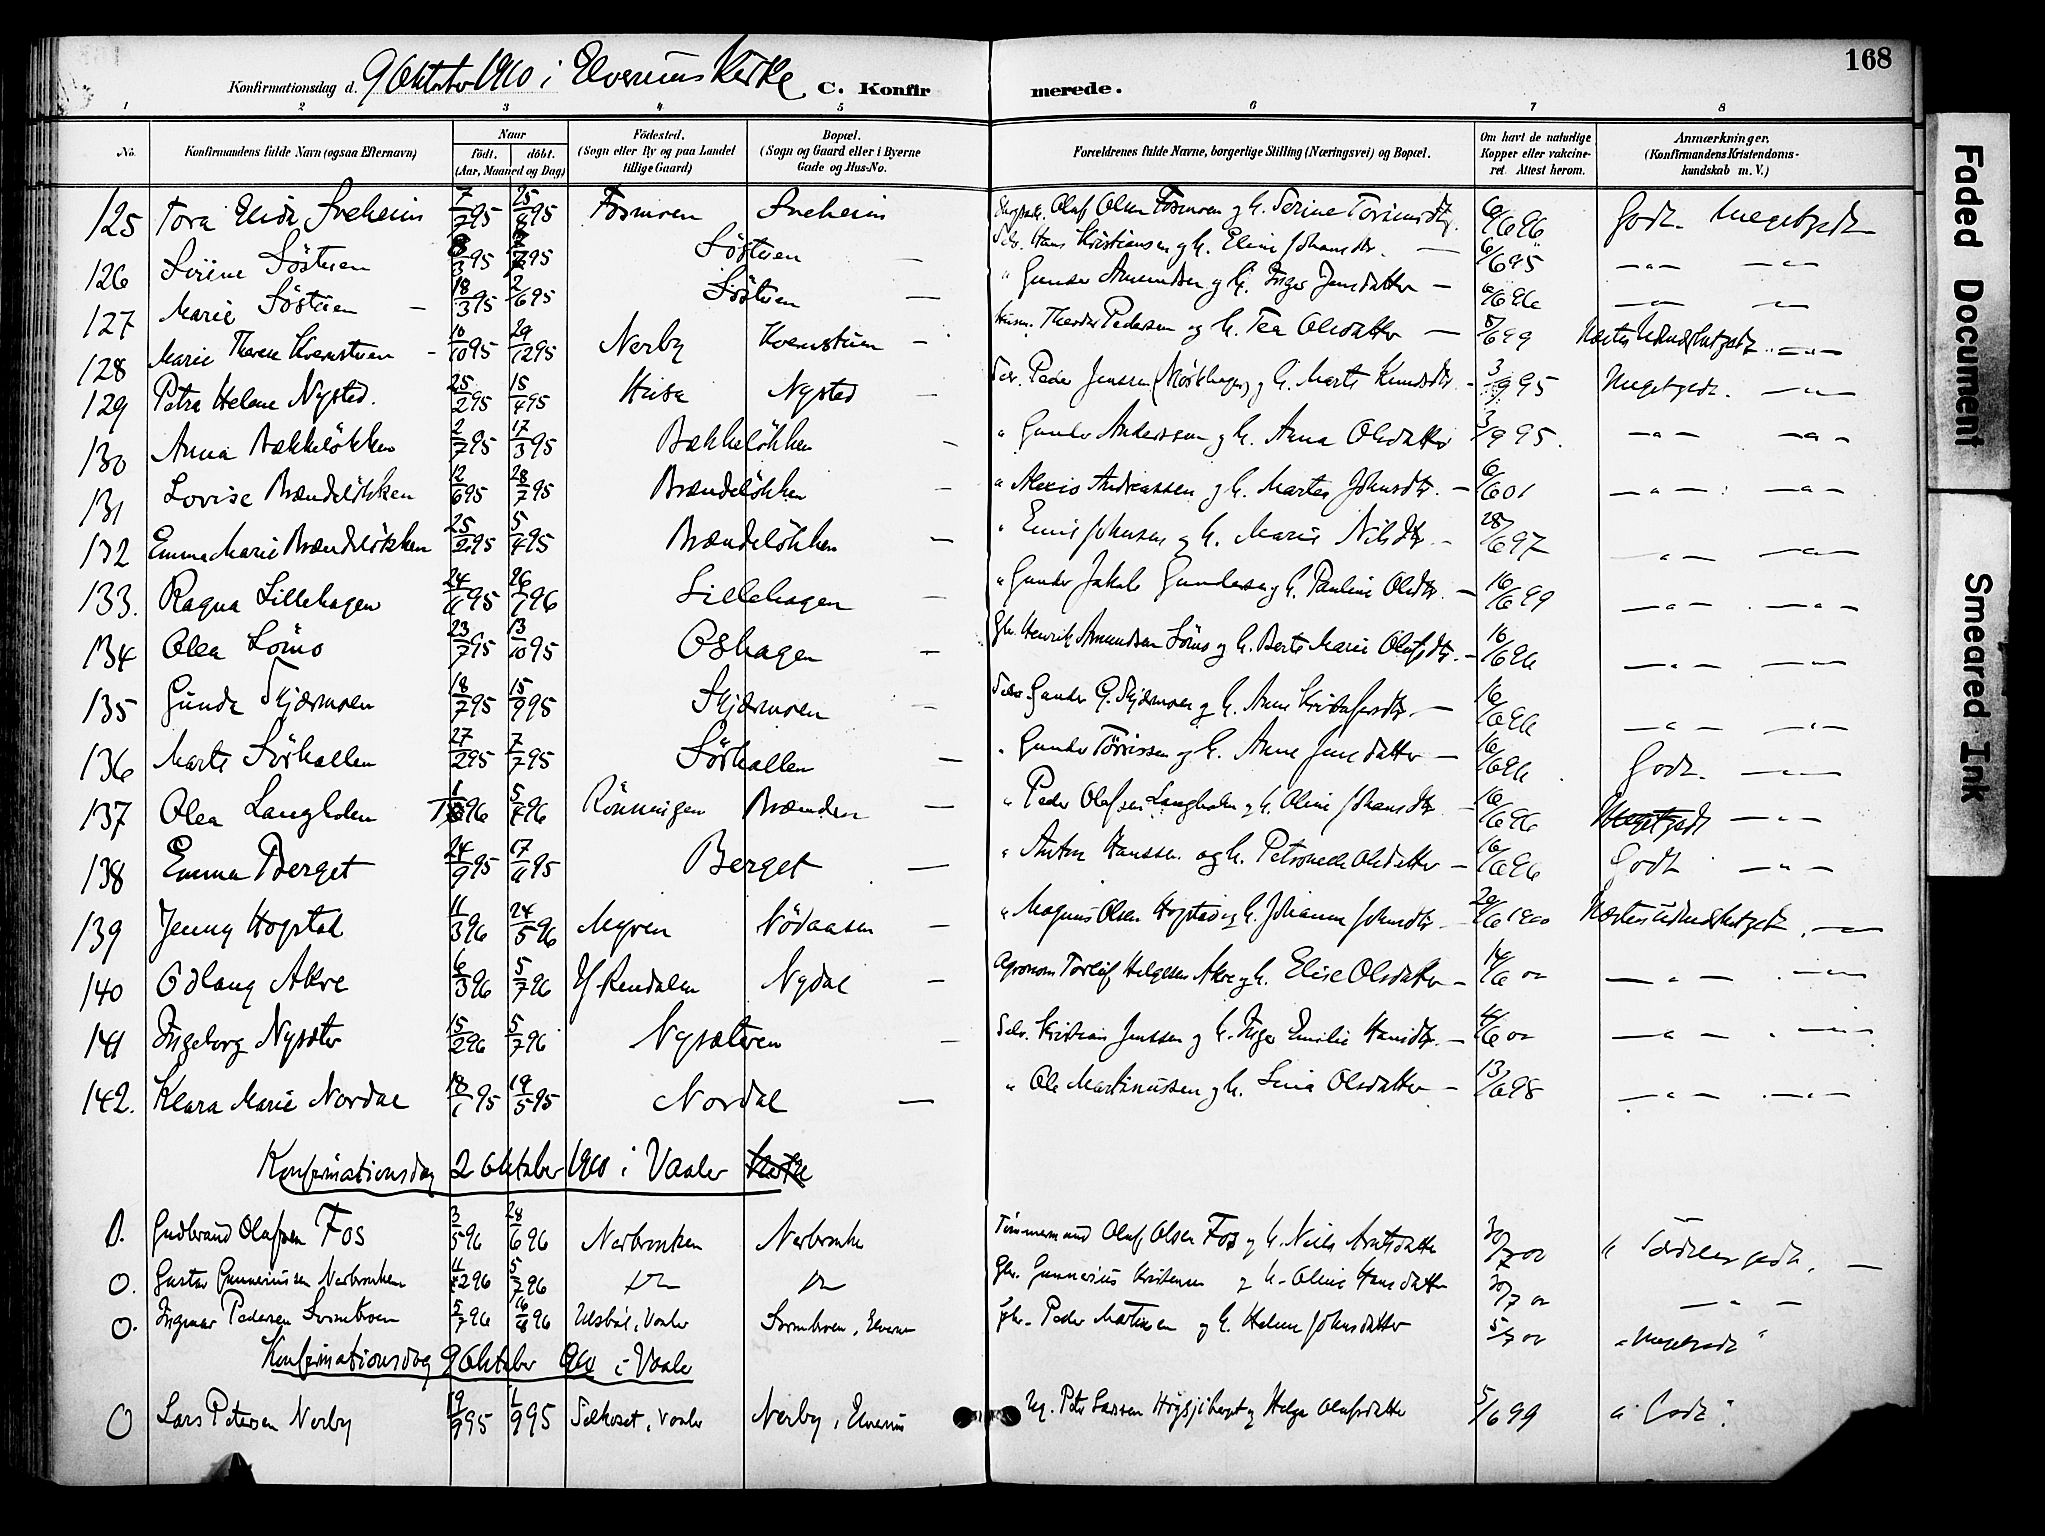 168
Konfirmationsdag d. 9 Oktober 1910 i Elverums Kirke C. Konfirmerede.
1 2 3 4 5 6 7 8
No. Konfirmandens fulde Navn (ogsaa Efternavn) Naar födt. döbt. (Aar, Maaned og Dag) Födested. (Sogn eller By og paa Landet tillige Gaard) Bopæl. (Sogn og Gaard eller i Byerne Gade og Hus-No. Forældrenes fulde Navne, borgerlige Stilling (Næringsvei) og Bopæl. Om havt de naturlige Kopper eller vakcineret. Attest herom. Anmærkninger, (Konfirmandens Kristendomskundskab m. V.)
125 Tora Elida Sveheim 7/2 95 25/8 95 Fosmoen Sveheim Olaf Olsen Fosmoen og h. Serine 6/6 96 Godt. Megetgodt
126 Sörine Söstuen 95 95 Söstuen — Selv. Hans Kristiansen og h. Eline Johansdtr. — 6/6 95 — " — — " —
127 Marie Söstuen — 18/3 95 2/6 95 Söstuen — " Gunder Amundsen og h. Inger Jensdatter — 6/6 96 — " — — " —
128 Marie Therese Kvernstuen — 10/10 95 29/12 95 Nerby Kvernstuen — Husm. Theodor Pedersen og h. Tea Olsdatter — 8/6 99 — " —
129 Petra Helene Nysted. 25/2 95 15/4 95 Husa Nysted — Selv. Peder Jenssen (Mörkhagen) og h. Marte Knudsdtr. — 3/9 95 Megetgodt. — " —
130 Anna Bækkelökken 2/7 95 17/3 95 Bækkelökken — " Gunder Anderssen og h. Anna Olsdatter 3/9 95. — " — — " —
131 Lovise Brændelökken 12/6 95 28/7 95 Brændelökken — " Alexis Andreassen og h. Marte Johnsdtr. — 6/6 01 — " — — " —
132 Emma Marie Brændelökken 25/2 95 5/4 95 Brændelökken — " Emil Johnsen og h. Marie Nilsdtr. — 28/6 97 — " — — " —
133. Ragna Lillehagen 24/11 95 26/1 96 Lillehagen — " Gunder Jakob Gundersen og h. Pauline Olsdtr. — 16/6 99 — " — — " —
134 Olea Lömo 23/7 95 13/10 95 Oshagen — Gbr. Henrik Amundsen Lömo og h. Berte Marie Olafsdtr. — 16/6 96 — " — — " —
135 Gunda Skjærmoen 18/7 95 15/9 95 Skjærmoen — Selv. Gunder G. Skjærmoen og h. Anne Kristofersdtr. — 16/6 96 — " — — " —
136 Marte Sörhallen 27/2 95 7/7 95 Sörhallen — " Gunder Törrissen og h. Anne Jensdatter — 16/6 96 Godt. — " —
137 Olea Langholen 96 5/7 96 Rönningen Brænden — " Peder Olafsen Langholen og h. Oline Johansdtr. — 16/6 96 Megetgodt — " —
138 Emma Berget 24/9 95 17/11 95 Berget — " Anton Hanssen og h. Petronelle Olsdatter — 16/6 96 Godt — " —
139 Jenny Hogstad 11/3 96 24/5 96 Myren Nödaasen — " Magnus Olsen Hogstad og h. Johanne Johnsdtr. — 20/6 1900 — " —
140 Odlaug Akre 6/3 96 5/7 96 Y. Rendalen Nydal — Agronom Torleif Helgesen Akre og h. Elise Olsdatter — 14/6 00 — " — — " —
141 Ingeborg Nysæter 15/2 96 5/7 96 Nysæteren — Selv. Kristian Jenssen og h. Inger Emilie Hansdtr. — 4/6 00 — " — — " —
142. Klara Marie Nordal 18/1 95 19/5 95 Nordal — " Ole Martinussen og h. Lina Olsdatter — 13/6 98 — " — — " —
Konfirmationsdag 2 Oktober 1910 i Vaaler Kirke
0. Gudbrand Olafsen Fos 3/5 96 28/6 96 Nerbronken Nerbronken Tömmermand Olaf Olsen Fos og h. 30/7 00 " godt. —
0. Gustav Gunneriussen Nerbronken 96 5/7 96 do do Gbr. Gunnerius Kristensen og h. Oline Hansdatter 30/7 00 — " —
0. Ingmar Pedersen Svenkroen 5/7 96 16/8 96 , Vaaler , Elverum Gbr. Peder Martinsen og h. Helene Johnsdatter 5/7 00 " Megetgodt "
Konfirmationsdag 9 Oktober 1910 i Vaaler
0 Lars Petersen Nerby 19/9 95 1/9 95 , Vaaler Nerby, Elverum Peter Larssen og Helga Olafsdatter 5/6 99 " Godt".
Faded Document
Smeared Ink